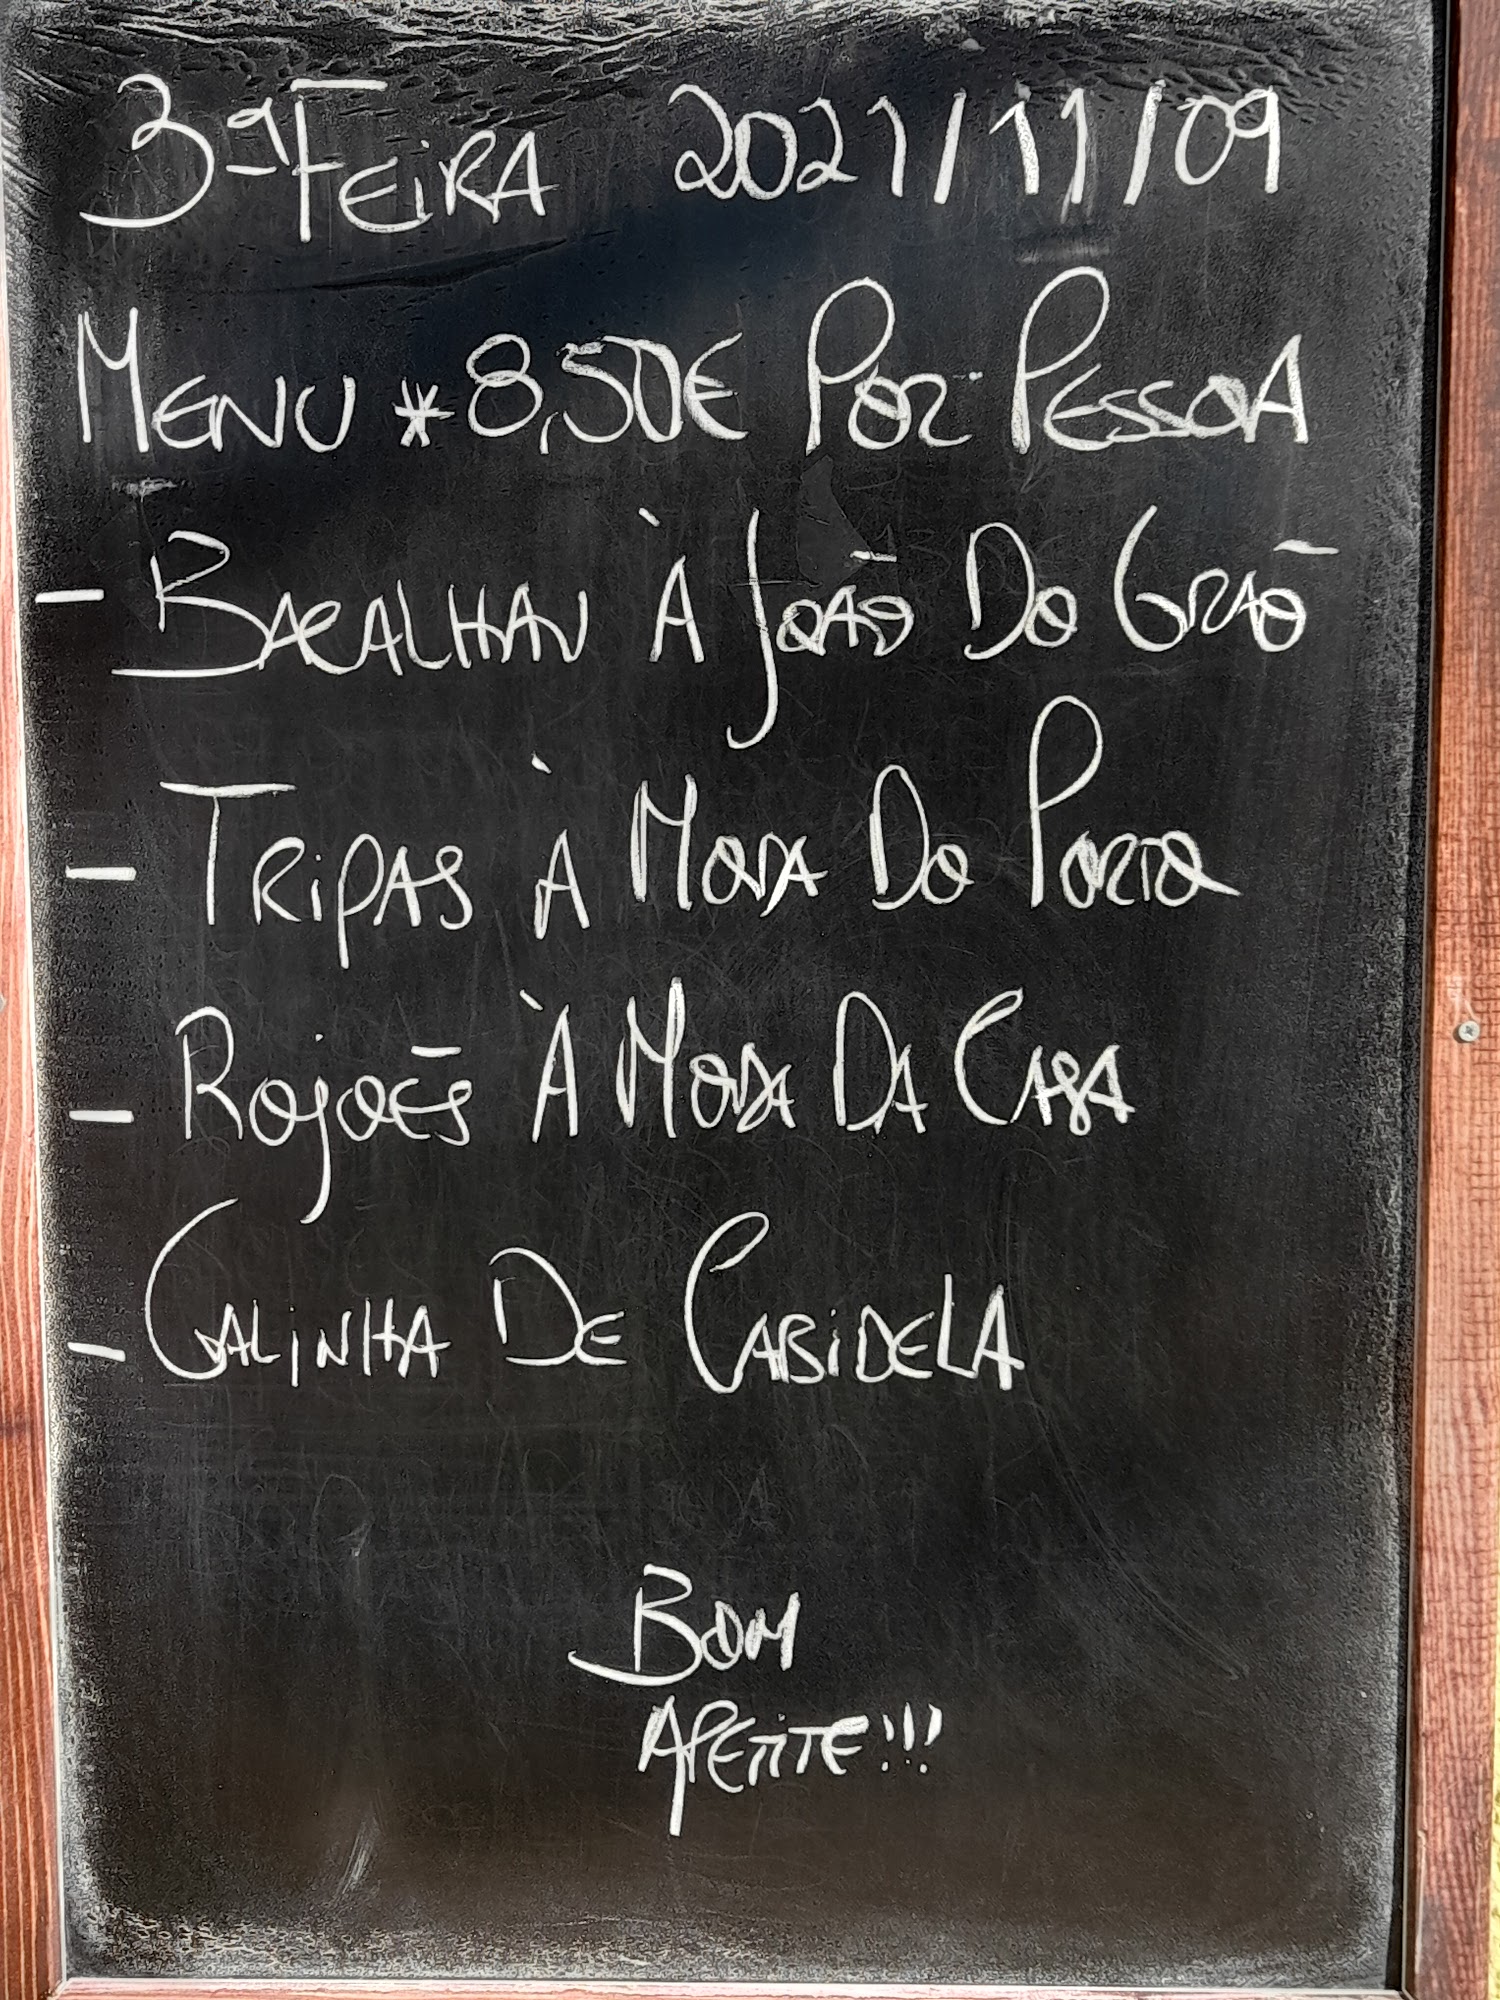 3ª FEiRA 2021/11/09
MENU *8,50€ POR PESSOA
- BACALHAU À JOÃO DO GRÃO
- TRiPAS À MODA DO PORTO
- ROJÕES À MODA DA CASA
- GALiNHA DE CABiDELA
BOM
APETiTE!!!